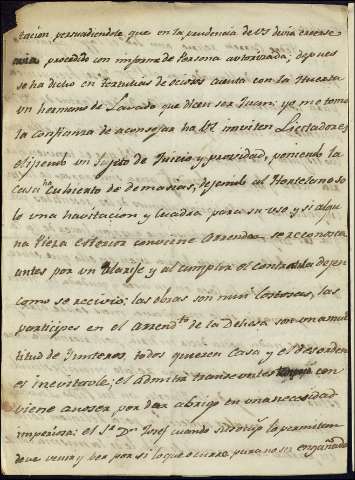 tacion, persuadiendose que en la prudencia de VS devia creerse
procedido con informe de Persona autorizada; depues
se ha dicho en tertulias de ociosos cuenta con la Huerta
un hermano de Lavado que dicen ser Juan: yo me tomo
la confianza de aconsejar ha VS imviten Licitadores,
elijendo un Sujeto de Juicio y providad, poniendo la
Casa ha Cubierto de demasias, dejando al Hortelano so
lo una havitacion y Cuadra para su uso, y si algu
na Pieza esterior conviene Arrendar se reconosca
antes por un Alarife y al cumplir el contrato la dejen
como se recivio: las obras son mui Costosas, las
participes en el Arrendto de la Dehesa son una mul
titud de Junteros, todos quieren Casa y el desorden
es inevitable; el admitir transeuntes con
viene a no ser por dar abrigo en una necesidad
imperiosa: el Sr Dn Josef cuando su lo permitan
deve venir y ver por si lo que ocurre para no ser engañado